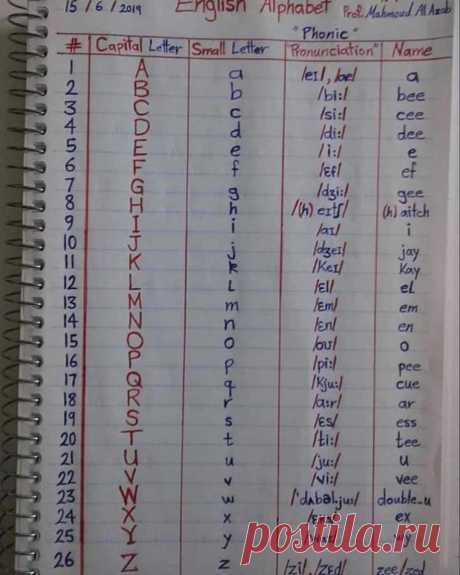 15 / 6 / 2019 English Alphabet Prof. Mahmoud Al Azab
"Phonic"
# Capital Letter Small Letter Pronunciation" Name
1 A a /eɪ/, /æ/ a
2 B b /bi:/ bee
3 C c /si:/ cee
4 D d /di:/ dee
5 E e /i:/ e
6 F f /ɛf/ ef
7 G g /dʒi:/ gee
8 H h /(h) eɪtʃ/ (h) aitch
9 I i /aɪ/ i
10 J j /dʒeɪ/ jay
11 K k /keɪ/ Kay
12 L L /ɛl/ eL
13 M m /ɛm/ em
14 N n /ɛn/ en
15 O o /oʊ/ o
16 P p /pi:/ pee
17 Q q /kju:/ cue
18 R r /ɑ:r/ ar
19 S s /ɛs/ ess
20 T t /ti:/ tee
21 U u /ju:/ u
22 V v /vi:/ vee
23 W w /'dʌbəl.ju:/ double_u
24 X x ex
25 Y y
26 Z z /zi/, /zɛd/ zee/zed
posila.ru